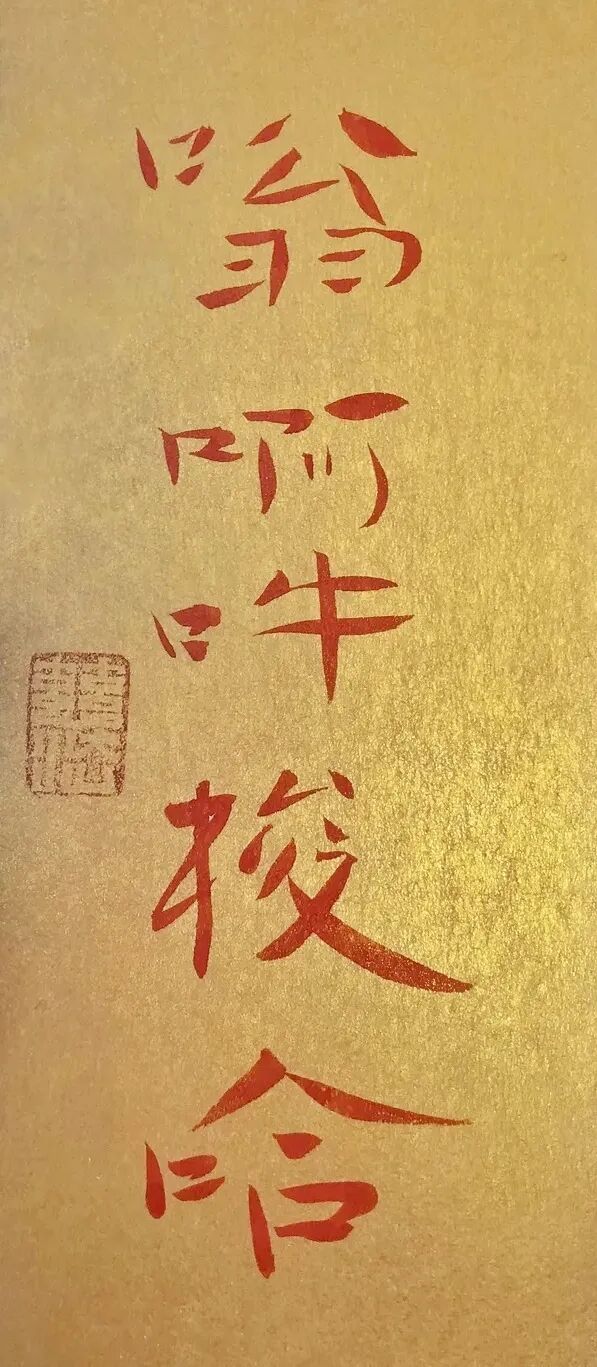 嗡啊吽梭哈